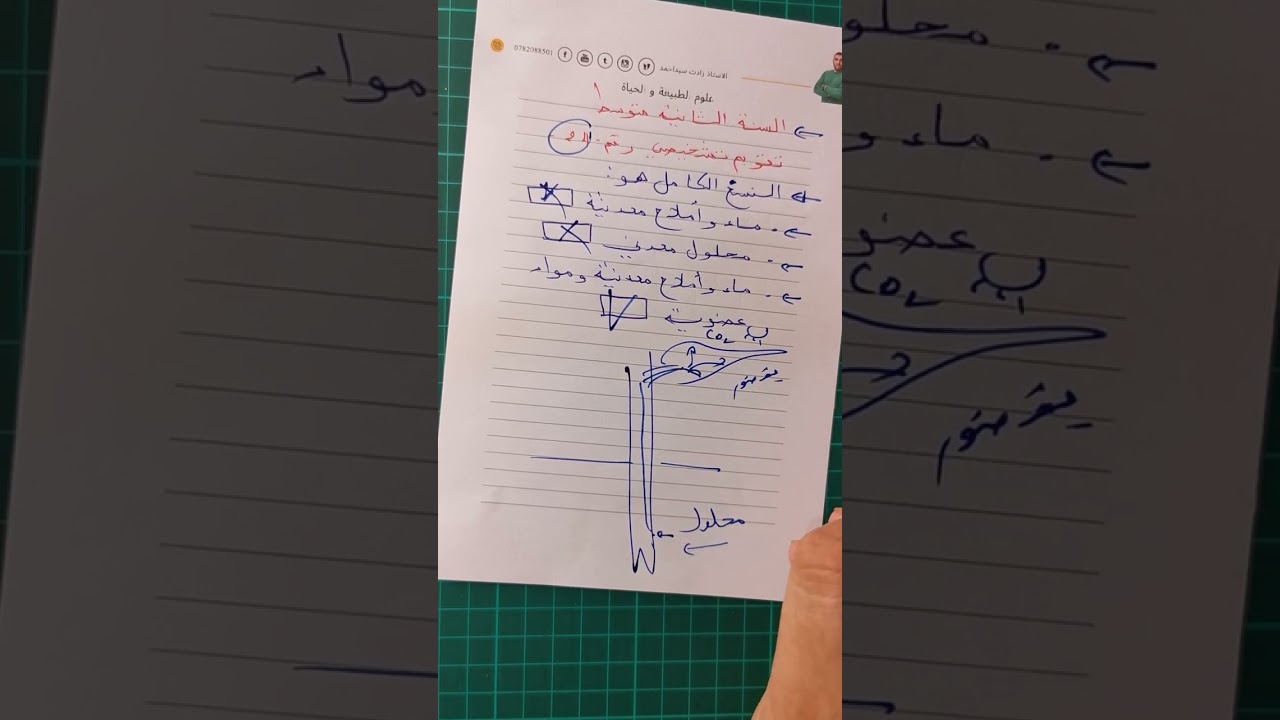 0782088501 الاستاذ زادت سيداحمد
علوم الطبيعة و الحياة
السنة الثانية متوسط
تقويم تشخيصي رقم
النسغ الكامل هو:
ماء وأملاح معدنية
محلول معدني
ماء وأملاح معدنية ومواد
عضوية
CO2
محلول